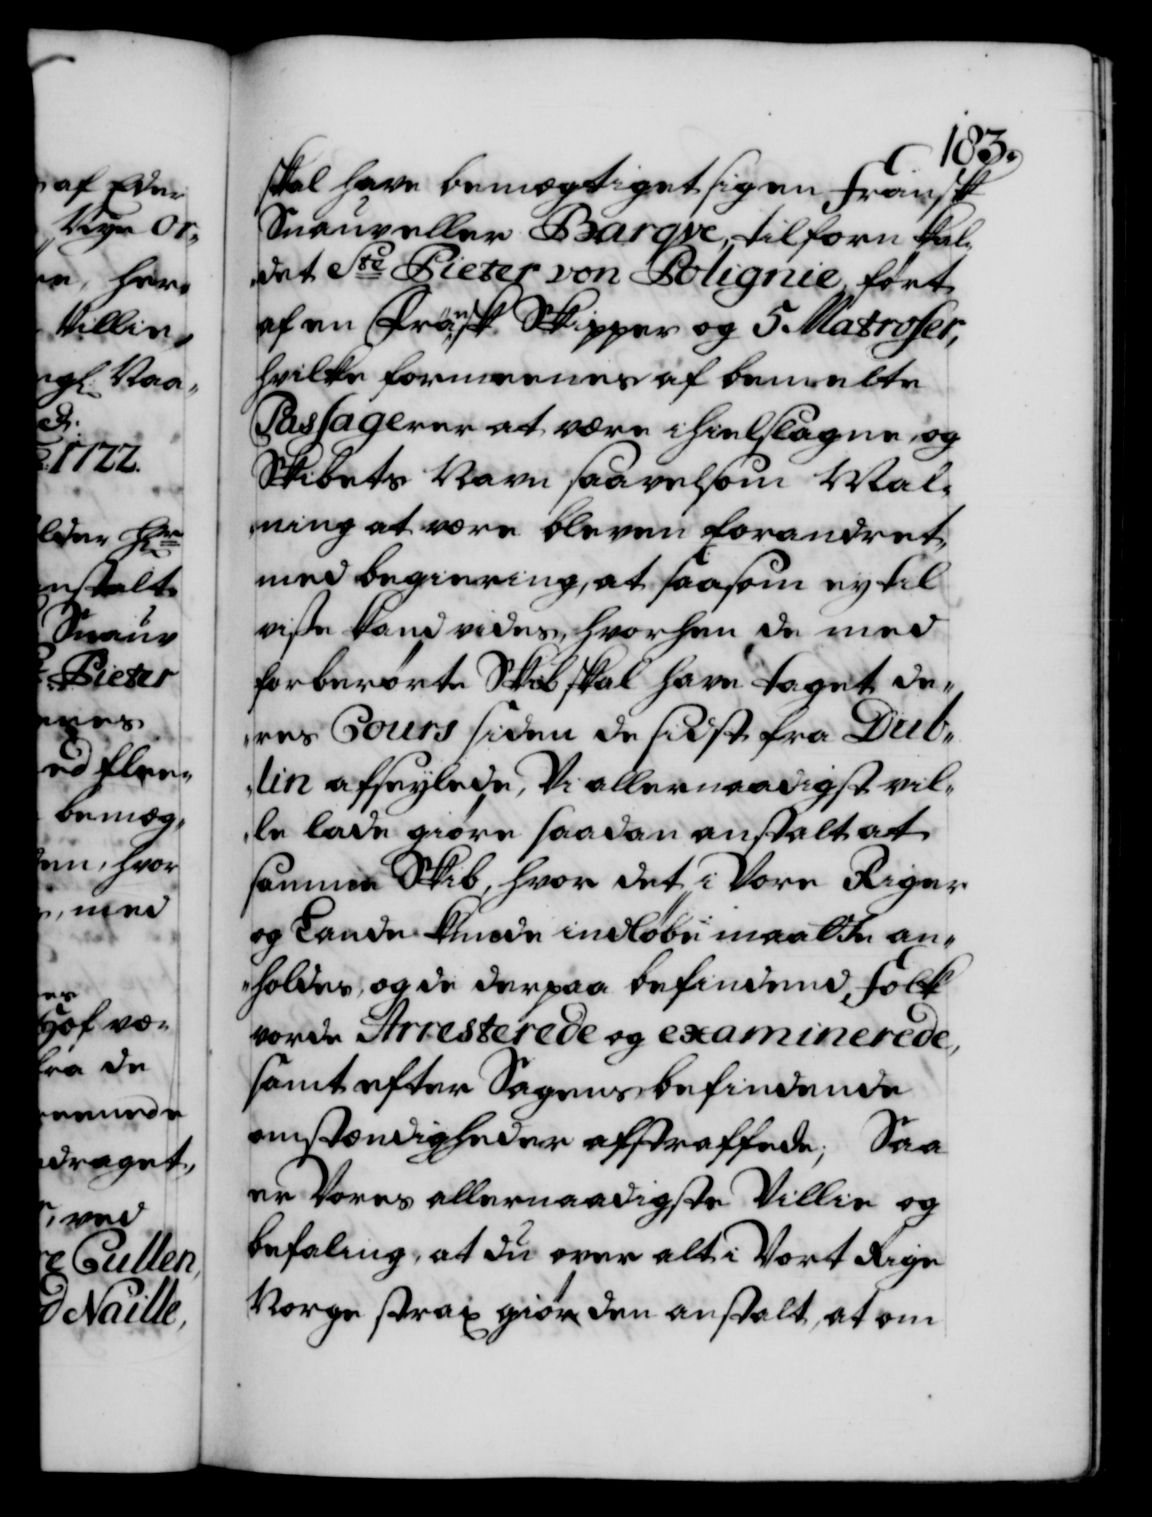 183.
skal have bemægtiget sig en Fransk
Snauv eller Barqve, tilforn kal,
det Ste Pieter von Polignie, ført
af en Fransk Skipper og 5 Matroser,
hvilke formeenes af bemelte
Passagerer at være ihielslagne, og
Skibets Navn saavelsom Mal,
ning at være bleven forandret,
med begiering, at saasom ey til
visse kand vides, hvorhen de med
forberørte Skib skal have taget de„
„res Cours siden de sidst fra Dub„
„lin afseylede, Vi allernaadigst vil„
„le lade giøre saadan anstalt at
samme Skib, hvor det i Vore Riger
og Lande kunde indløbe maatte an„
„holdes, og de derpaa befindend Folk
vorde Arresterede og examinerede,
samt efter Sagens befindende
omstændigheder afstraffede; Saa
er Vores allernaadigste Villie og
befaling, at du over alt i Vort Rige
Norge strax giør den anstalt, at om
af Eder
Nye Or,
her,
Villie,
Naa,
1722.
anstalt
Snauv
Pieter
bemæg,
hvor
med
Hof væ,
fra de
draget,
ved
Cullen,
Naille,